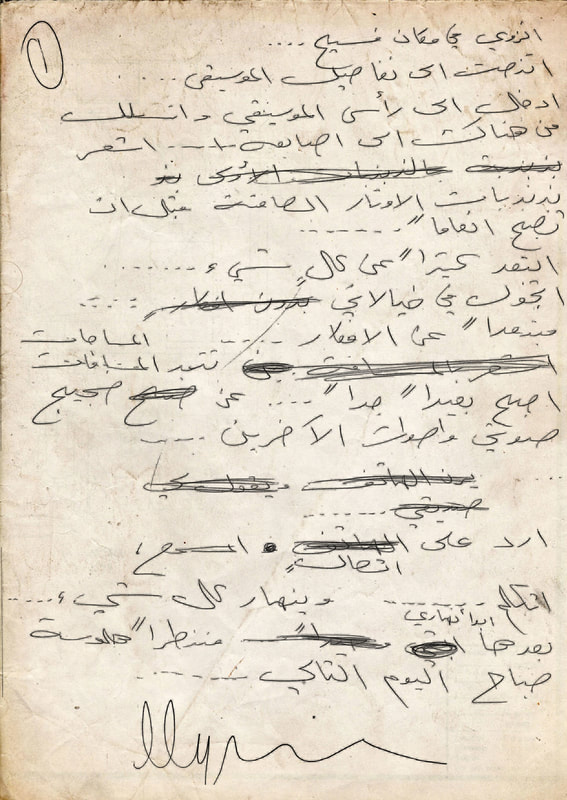 ١
انزوي في مكان فسيح ....
انصت الى تفاصيل الموسيقى ...
ادخل الى رأس الموسيقي وانسلل
من هناك الى اصابعه ..... اشعر
بذبذبات الاوتار الصامتة قبل ان
تصبح انغاما ً .......
ابتعد كثيرا ً عن كل شيء ......
اتجول في خيالاتي بدون افكار ....
مبتعدا ً عن الافكار .... المساحات
تتعد المسافات
اصبح بعيدا ً جدا ً .... عن ضجيج
صوتي واصوات الآخرين ....
يرن الهاتف
صديقي ......
ارد على اتصالك ً المزعج ،
اتكلم ........ وينهار كل شيء ....
بعدها ابدأ نهاري منتظرا ً هلوسة
صباح اليوم التالي .......